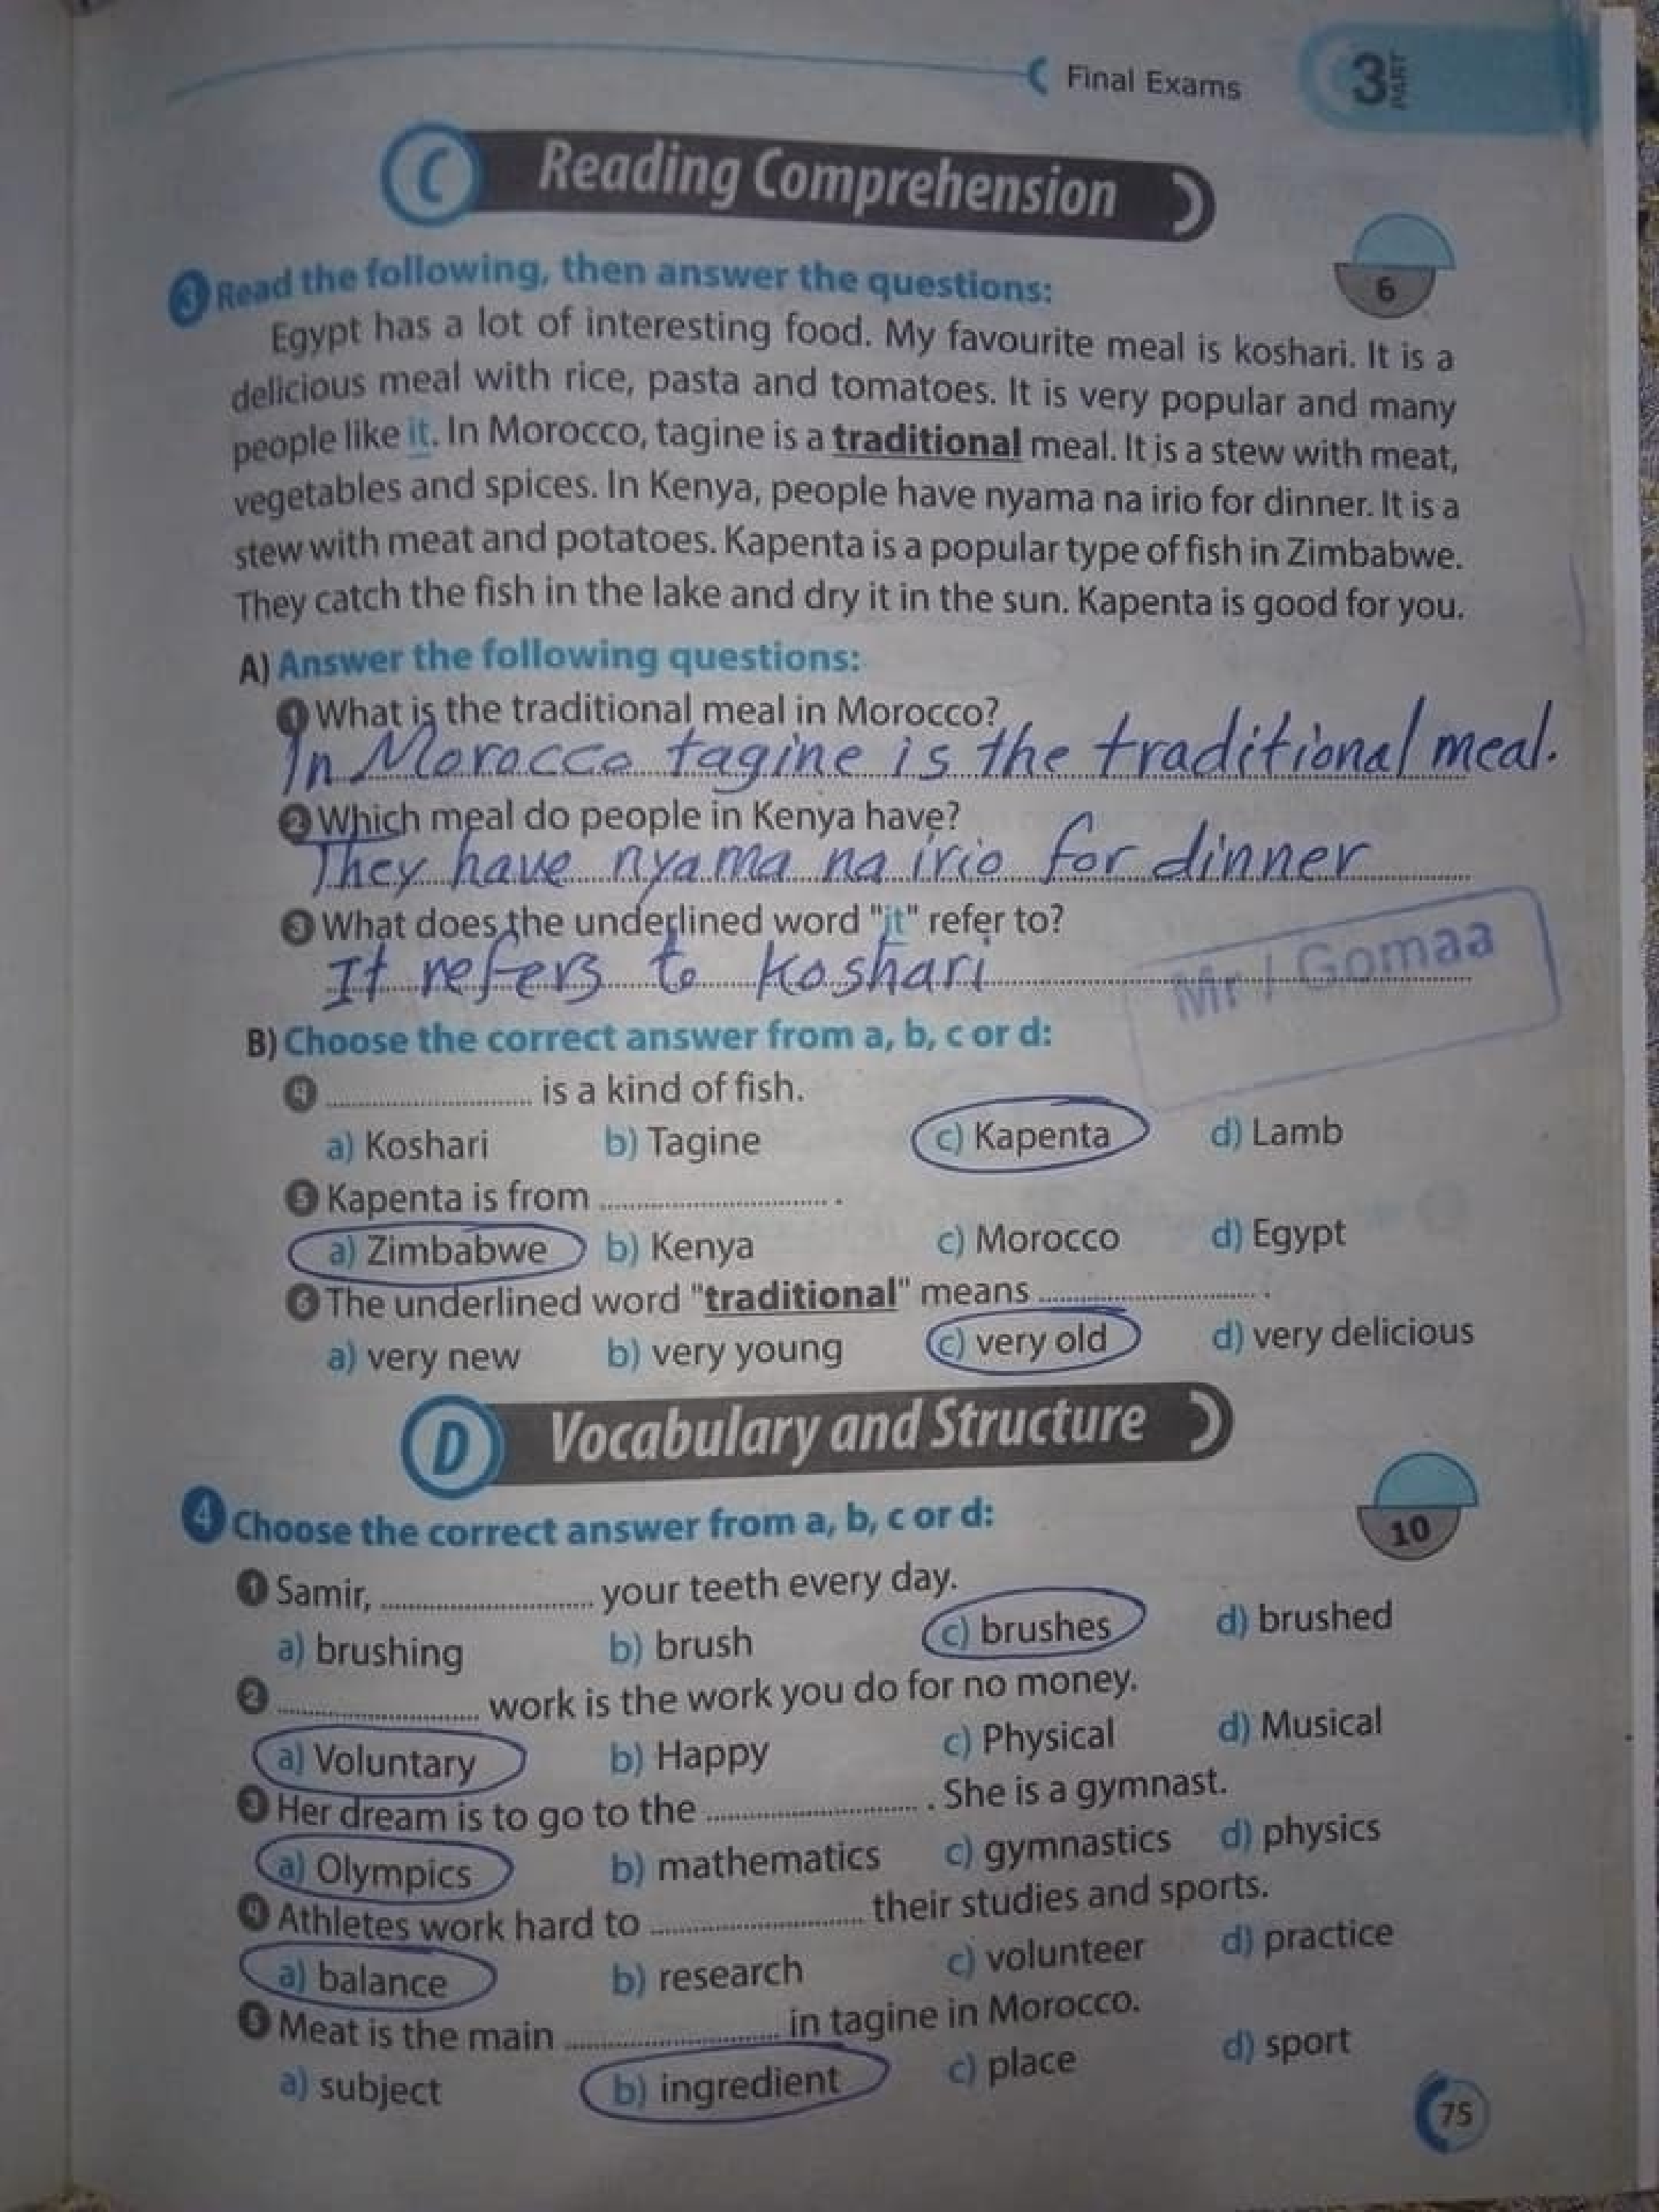 Final Exams
3 PART
C Reading Comprehension
6
3 Read the following, then answer the questions:
Egypt has a lot of interesting food. My favourite meal is koshari. It is a
delicious meal with rice, pasta and tomatoes. It is very popular and many
people like it. In Morocco, tagine is a traditional meal. It is a stew with meat,
vegetables and spices. In Kenya, people have nyama na irio for dinner. It is a
stew with meat and potatoes. Kapenta is a popular type of fish in Zimbabwe.
They catch the fish in the lake and dry it in the sun. Kapenta is good for you.
A) Answer the following questions:
1 What is the traditional meal in Morocco?
In Morocco tagine is the traditional meal.
2 Which meal do people in Kenya have?
They have nyama na irio for dinner
3 What does the underlined word "it" refer to?
It refers to koshari
Mr / Gomaa
B) Choose the correct answer from a, b, c or d:
4 .................... is a kind of fish.
a) Koshari b) Tagine c) Kapenta d) Lamb
5 Kapenta is from .................... .
a) Zimbabwe b) Kenya c) Morocco d) Egypt
6 The underlined word "traditional" means .................... .
a) very new b) very young c) very old d) very delicious
D Vocabulary and Structure
10
4 Choose the correct answer from a, b, c or d:
1 Samir, .................... your teeth every day.
a) brushing b) brush c) brushes d) brushed
2 .................... work is the work you do for no money.
a) Voluntary b) Happy c) Physical d) Musical
3 Her dream is to go to the .................... . She is a gymnast.
a) Olympics b) mathematics c) gymnastics d) physics
4 Athletes work hard to .................... their studies and sports.
a) balance b) research c) volunteer d) practice
5 Meat is the main .................... in tagine in Morocco.
a) subject b) ingredient c) place d) sport
75